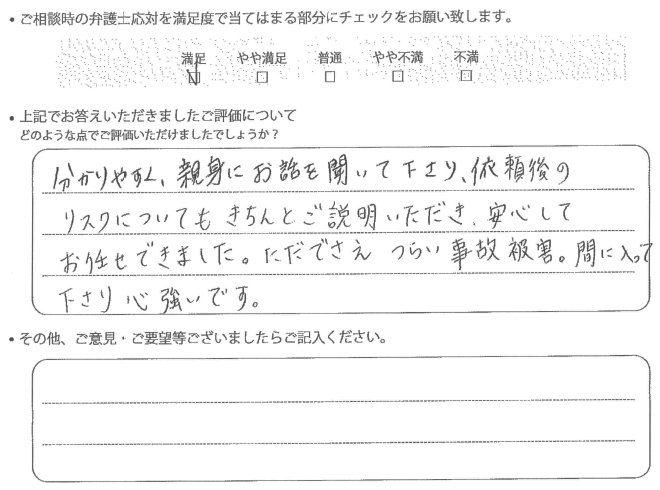 • ご相談時の弁護士応対を満足度で当てはまる部分にチェックをお願い致します。
満足 やや満足 普通 やや不満 不満
☑ □ □ □ □
• 上記でお答えいただきましたご評価について
どのような点でご評価いただけましたでしょうか？
分かりやすく、親身にお話を聞いて下さり、依頼後の
リスクについてもきちんとご説明いただき、安心して
お任せできました。ただでさえ つらい事故被害。間に入って
下さり心強いです。
• その他、ご意見・ご要望等ございましたらご記入ください。